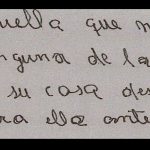 uella que n
nguna de la
su casa des
ra ella ante